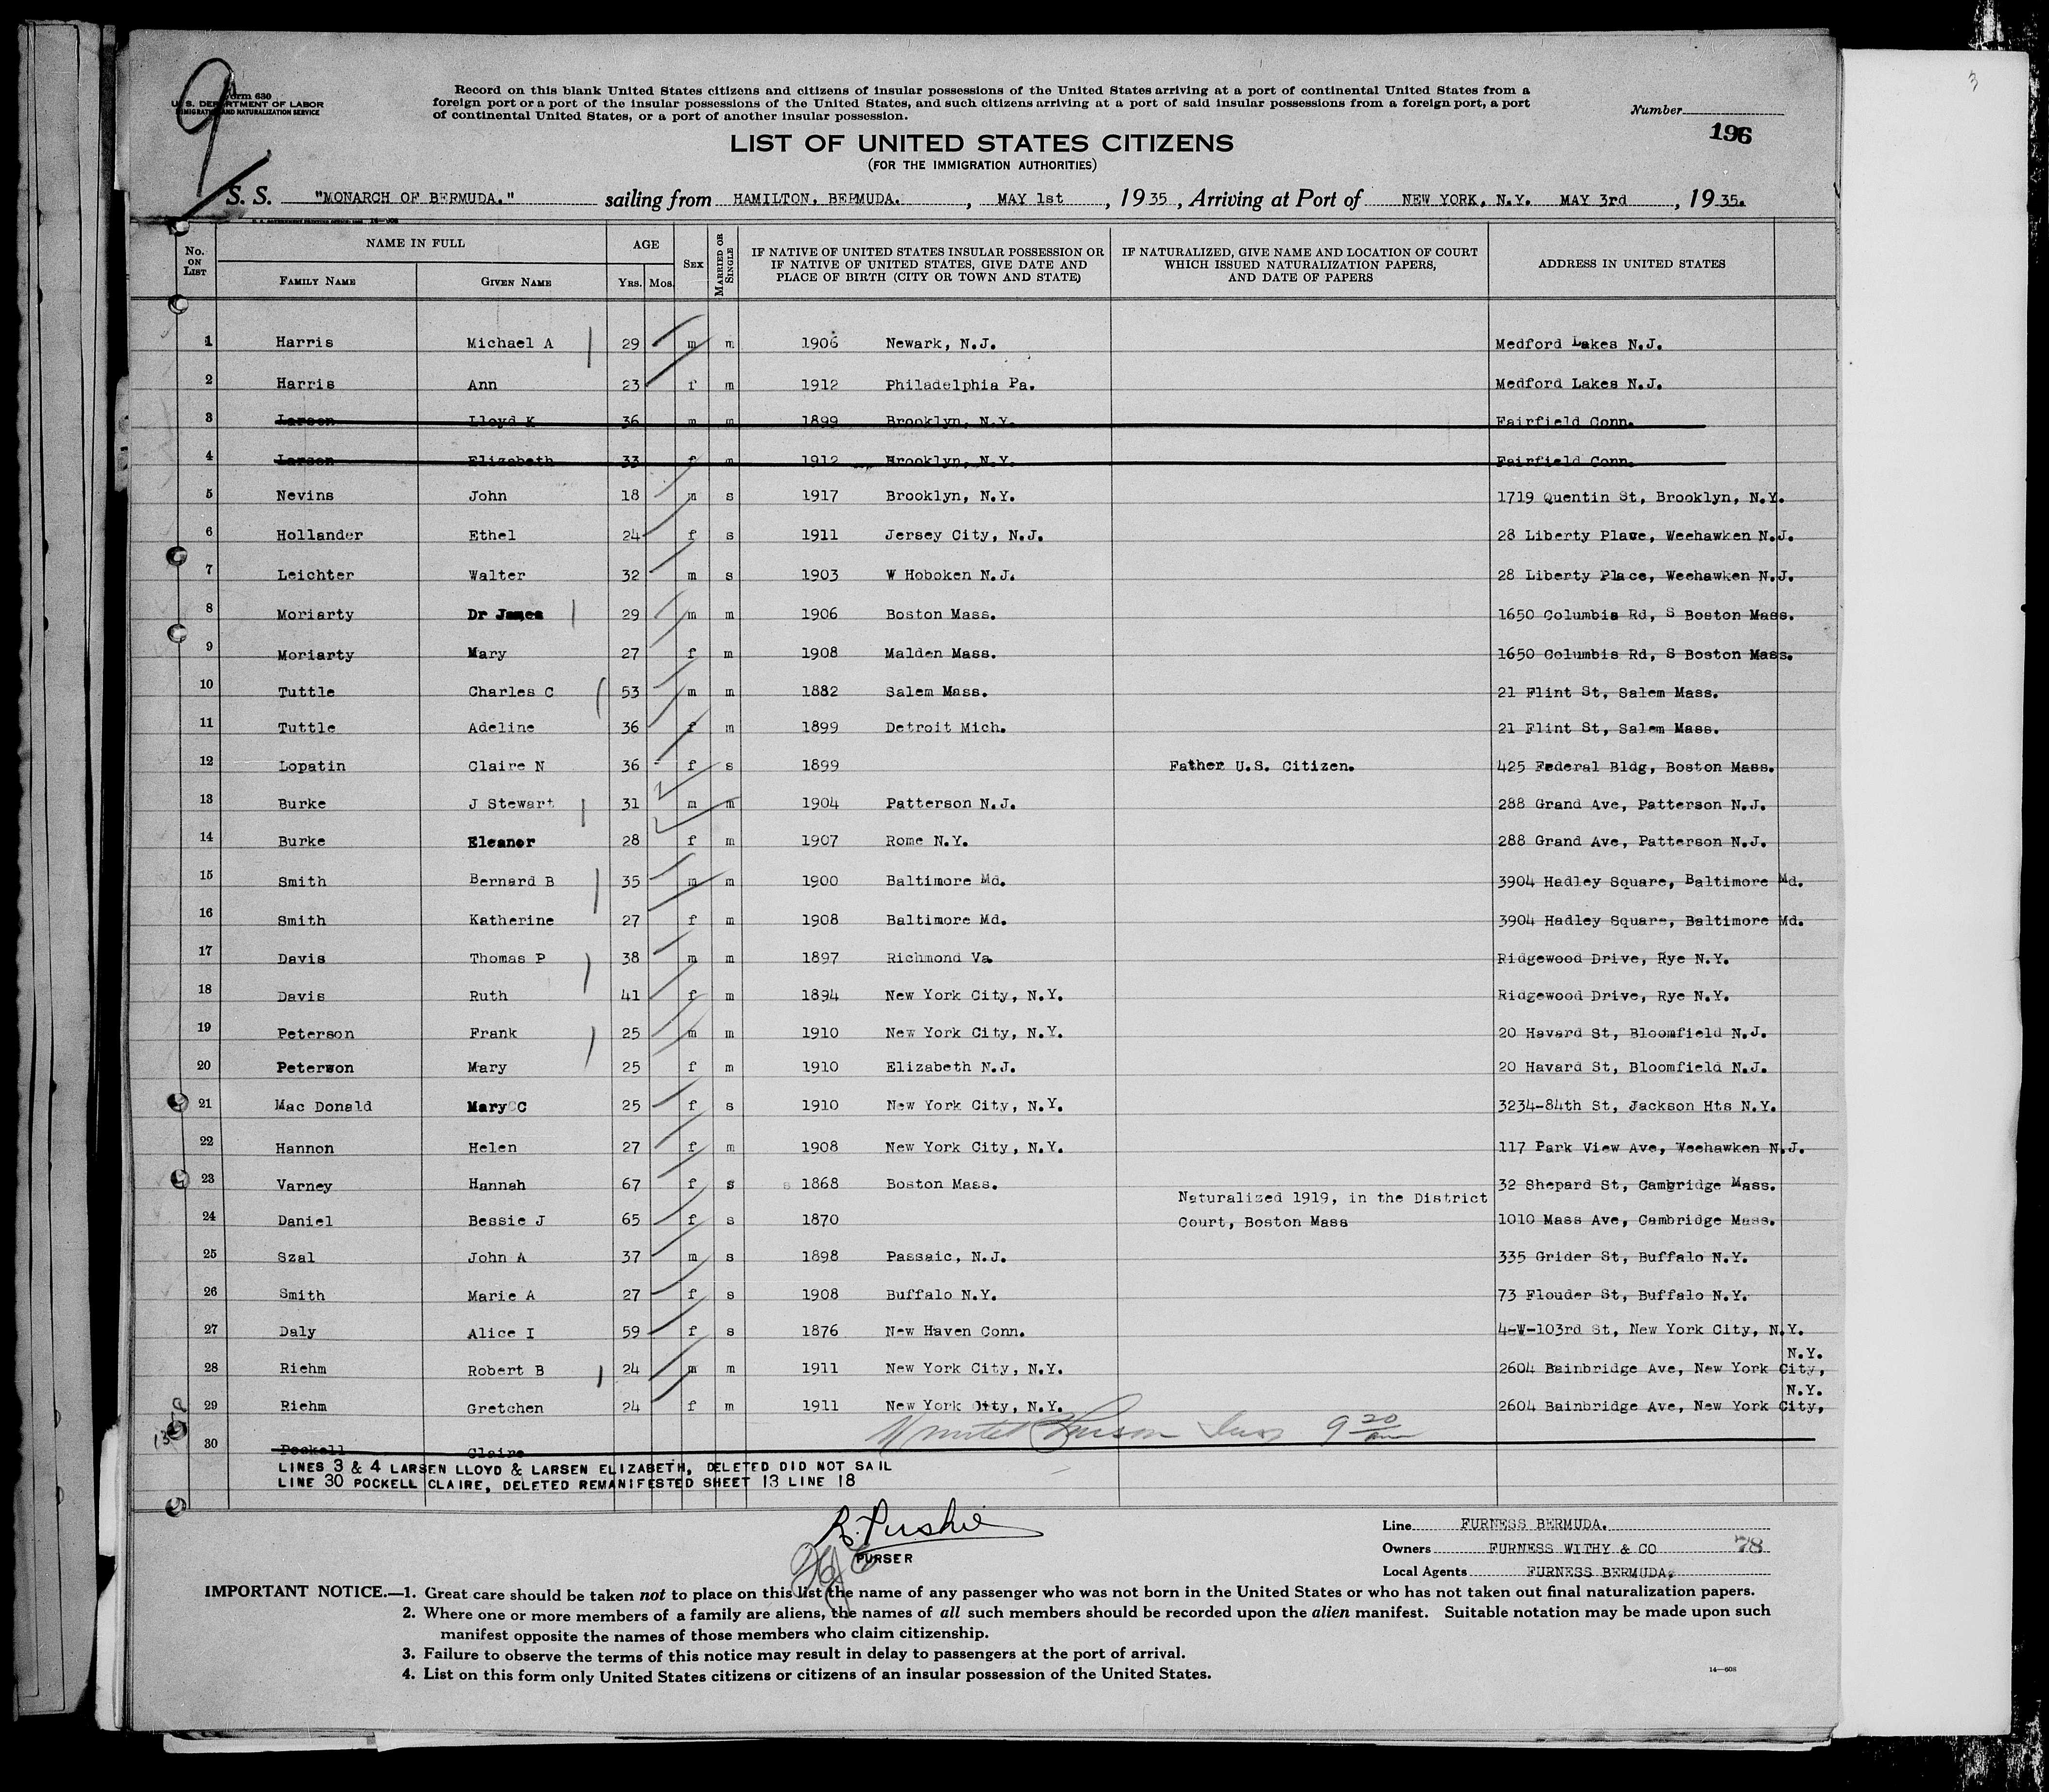 3
9
Form 630
U. S. DEPARTMENT OF LABOR
IMMIGRATION AND NATURALIZATION SERVICE
Record on this blank United States citizens and citizens of insular possessions of the United States arriving at a port of continental United States from a
foreign port or a port of the insular possessions of the United States, and such citizens arriving at a port of said insular possessions from a foreign port, a port
of continental United States, or a port of another insular possession.
Number
196
LIST OF UNITED STATES CITIZENS
(FOR THE IMMIGRATION AUTHORITIES)
S. S. "MONARCH OF BERMUDA." sailing from HAMILTON, BERMUDA. , MAY 1st , 1935 , Arriving at Port of NEW YORK, N.Y. MAY 3rd , 1935.
No. ON LIST NAME IN FULL FAMILY NAME GIVEN NAME AGE YRS. MOS. SEX MARRIED OR SINGLE IF NATIVE OF UNITED STATES INSULAR POSSESSION OR IF NATIVE OF UNITED STATES, GIVE DATE AND PLACE OF BIRTH (CITY OR TOWN AND STATE) IF NATURALIZED, GIVE NAME AND LOCATION OF COURT WHICH ISSUED NATURALIZATION PAPERS, AND DATE OF PAPERS ADDRESS IN UNITED STATES
1 Harris Michael A 29 m m 1906 Newark, N.J. Medford Lakes N.J.
2 Harris Ann 23 f m 1912 Philadelphia Pa. Medford Lakes N.J.
3 Larsen Lloyd K 36 m m 1899 Brooklyn, N.Y. Fairfield Conn.
4 Larsen Elizabeth 33 f m 1912 Brooklyn, N.Y. Fairfield Conn.
5 Nevins John 18 m s 1917 Brooklyn, N.Y. 1719 Quentin St, Brooklyn, N.Y.
6 Hollander Ethel 24 f s 1911 Jersey City, N.J. 28 Liberty Place, Weehawken N.J.
7 Leichter Walter 32 m s 1903 W Hoboken N.J. 28 Liberty Place, Weehawken N.J.
8 Moriarty Dr James 29 m m 1906 Boston Mass. 1650 Columbia Rd, S Boston Mass.
9 Moriarty Mary 27 f m 1908 Malden Mass. 1650 Columbia Rd, S Boston Mass.
10 Tuttle Charles C 53 m m 1882 Salem Mass. 21 Flint St, Salem Mass.
11 Tuttle Adeline 36 f m 1899 Detroit Mich. 21 Flint St, Salem Mass.
12 Lopatin Claire N 36 f s 1899 Father U.S. Citizen. 425 Federal Bldg, Boston Mass.
13 Burke J Stewart 31 m m 1904 Patterson N.J. 288 Grand Ave, Patterson N.J.
14 Burke Eleanor 28 f m 1907 Rome N.Y. 288 Grand Ave, Patterson N.J.
15 Smith Bernard B 35 m m 1900 Baltimore Md. 3904 Hadley Square, Baltimore Md.
16 Smith Katherine 27 f m 1908 Baltimore Md. 3904 Hadley Square, Baltimore Md.
17 Davis Thomas P 38 m m 1897 Richmond Va. Ridgewood Drive, Rye N.Y.
18 Davis Ruth 41 f m 1894 New York City, N.Y. Ridgewood Drive, Rye N.Y.
19 Peterson Frank 25 m m 1910 New York City, N.Y. 20 Havard St, Bloomfield N.J.
20 Peterson Mary 25 f m 1910 Elizabeth N.J. 20 Havard St, Bloomfield N.J.
21 Mac Donald Mary C 25 f s 1910 New York City, N.Y. 3234-84th St, Jackson Hts N.Y.
22 Hannon Helen 27 f m 1908 New York City, N.Y. 117 Park View Ave, Weehawken N.J.
23 Varney Hannah 67 f s 1868 Boston Mass. 32 Shepard St, Cambridge Mass.
Naturalized 1919, in the District
24 Daniel Bessie J 65 f s 1870 Court, Boston Mass 1010 Mass Ave, Cambridge Mass.
25 Szal John A 37 m s 1898 Passaic, N.J. 335 Grider St, Buffalo N.Y.
26 Smith Marie A 27 f s 1908 Buffalo N.Y. 73 Flouder St, Buffalo N.Y.
27 Daly Alice I 59 f s 1876 New Haven Conn. 4-W-103rd St, New York City, N.Y.
N.Y.
28 Riehm Robert B 24 m m 1911 New York City, N.Y. 2604 Bainbridge Ave, New York City,
N.Y.
29 Riehm Gretchen 24 f m 1911 New York City, N.Y. 2604 Bainbridge Ave, New York City,
9 20 am
30 Pockell Claire
LINES 3 & 4 LARSEN LLOYD & LARSEN ELIZABETH, DELETED DID NOT SAIL
LINE 30 POCKELL CLAIRE, DELETED REMANIFESTED SHEET 13 LINE 18
PURSER
Line FURNESS BERMUDA.
Owners FURNESS WITHY & CO 78
Local Agents FURNESS BERMUDA.
IMPORTANT NOTICE.—1. Great care should be taken not to place on this list the name of any passenger who was not born in the United States or who has not taken out final naturalization papers.
2. Where one or more members of a family are aliens, the names of all such members should be recorded upon the alien manifest. Suitable notation may be made upon such
manifest opposite the names of those members who claim citizenship.
3. Failure to observe the terms of this notice may result in delay to passengers at the port of arrival.
4. List on this form only United States citizens or citizens of an insular possession of the United States.
14—608